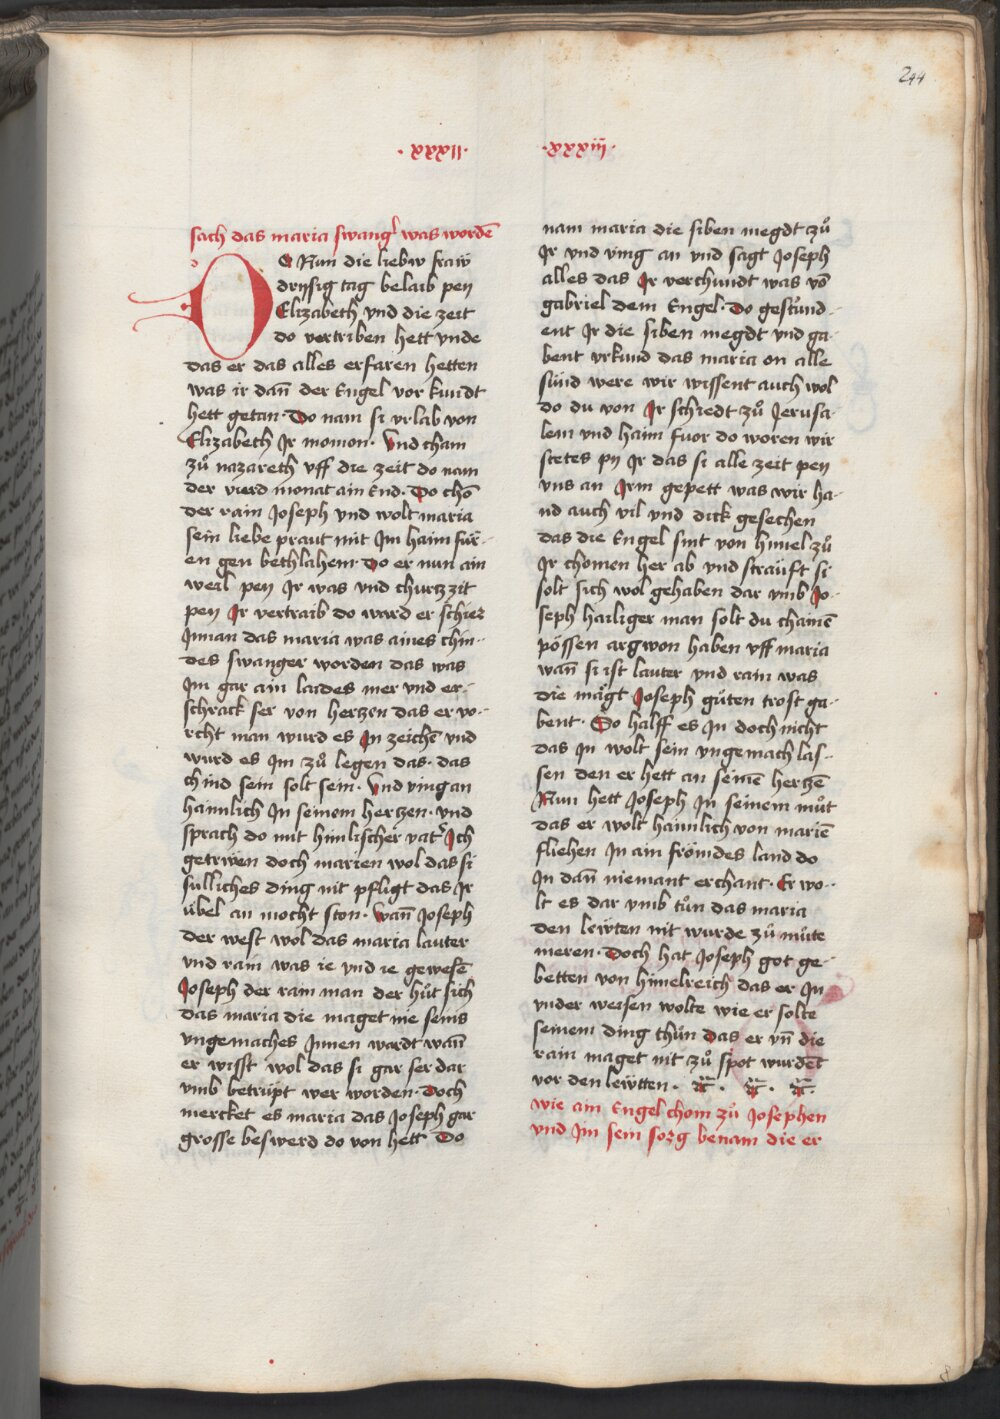 244
·xxxii·
·xxxiii·
sach das maria swang͛ was wordē
DO Nun die liebw fraw
dryssig tag belaib pey
Elizabeth vnd die zeit
do vertriben hett vnde
das er das alles erfaren hetten
was ir dañ der Engel vor kundt
hett getan· Do nam si vrlab von
Elizabeth Jr momon· Vnd cham
zů nazareth vff die zeit do nam
der vierd monat ain End· Do chō
der rain Joseph vnd wolt maria
sein liebe praut mit Jm haim für-
en gen bethlahem· Do er nun ain
weil pey Jr was vnd churtz zit
pey Jr vertraib do ward er schier
Jnnan das maria was aines chin-
des swanger worden das was
Jm gar ain laides mer vnd er-
schrack ser von hertzen das er vo-
rcht man wurd es Jn zeichē vnd
wurd es Jm zů legen das· das
chind sein solt sein· Vnd ving an
haimlich Jn seinem hertzen· vnd
sprach do mit himlischer vat͛ Jch
getrwen doch marien wol das si
sülliches ding nit pfligt das Jr
übel an mocht ston· wañ Joseph
der west wol das maria lauter
vnd rain was ie vnd ie gewesē
Joseph der rain man der hůt sich
das maria die maget nie seins
vngemaches Jnnen wardt wañ
er wisst wol das si gar ser dar
vmb betrüpt wer worden· Doch
mercket es maria das Joseph gar
grosse beswerd do von hett Do
nam maria die siben megdt zů
Jr vnd ving an vnd sagt Joseph
alles das Jr verchundt was vō
gabriel dem Engel· Do gestůnd-
ent Jr die siben megdt vnd ga-
bent vrkund das maria on alle
sünd were wir wissent auch wol
do du von Jr schiedt zů Jerusa-
lem vnd haim fuor do woren wir
stetes py Jr das si alle zeit pey
vns an Jrm gepett was wir ha-
nd auch vil vnd dick gesechen
das die Engel sint von himel zů
Jr chomen her ab vnd sträuft si
solt sich wol gehaben dar vmb Jo-
seph hailiger man solt du chainē
pössen argwon haben vff maria
wañ si ist lauter vnd rain was
die mägt Joseph gůten trost ga-
bent· Do halff es Jn doch nicht
das Jn wolt sein vngemach las-
sen den er hett an seinē hertzē
Nun hett Joseph Jn seinem můt
das er wolt haimlich von mariē
fliehen Jn ain frömdes land do
Jn dañ niemant erchant· Er wo-
lt es dar vmb tůn das maria
den lewten nit wurde zů můte
meren· Doch hat Joseph got ge-
betten von himelreich das er Jn
vnder weisen wolte wie er solte
seinem ding thůn das er vñ die
rain maget nit zů spot wurdēt
vor den lewtten·
wie ain Engel chom zů Josephen
vnd Jm sein sorg benam die er